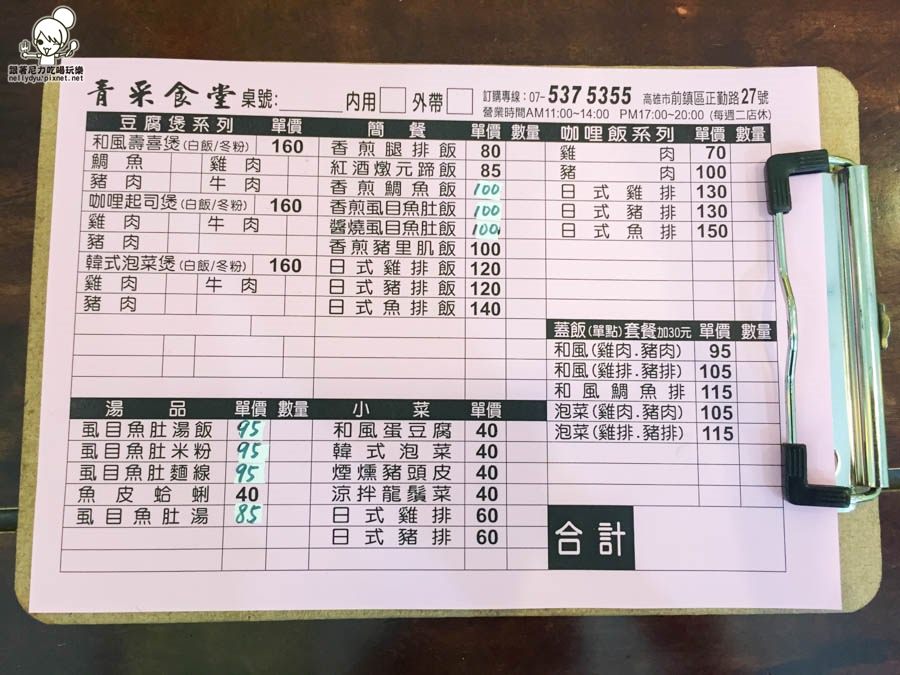 跟著尼力吃喝玩樂
nellydyu.pixnet.net
青采食堂 桌號:______ 內用 外帶 訂購專線:07-537 5355 高雄市前鎮區正勤路27號
營業時間AM11:00~14:00 PM17:00~20:00 (每週二店休)
豆腐煲系列 單價
和風壽喜煲(白飯/冬粉) 160
鯛魚 雞肉
豬肉 牛肉
咖哩起司煲(白飯/冬粉) 160
雞肉 牛肉
豬肉
韓式泡菜煲(白飯/冬粉) 160
雞肉 牛肉
豬肉
簡餐 單價 數量
香煎腿排飯 80
紅酒燉元蹄飯 85
香煎鯛魚飯 100
香煎虱目魚肚飯 100
醬燒虱目魚肚飯 100
香煎豬里肌飯 100
日式雞排飯 120
日式豬排飯 120
日式魚排飯 140
咖哩飯系列 單價 數量
雞肉 70
豬肉 100
日式雞排 130
日式豬排 130
日式魚排 150
蓋飯(單點)套餐加30元 單價 數量
和風(雞肉.豬肉) 95
和風(雞排.豬排) 105
和風鯛魚排 115
泡菜(雞肉.豬肉) 105
泡菜(雞排.豬排) 115
湯品 單價 數量
虱目魚肚湯飯 95
虱目魚肚米粉 95
虱目魚肚麵線 95
魚皮蛤蜊 40
虱目魚肚湯 85
小菜 單價
和風蛋豆腐 40
韓式泡菜 40
煙燻豬頭皮 40
涼拌龍鬚菜 40
日式雞排 60
日式豬排 60
合計